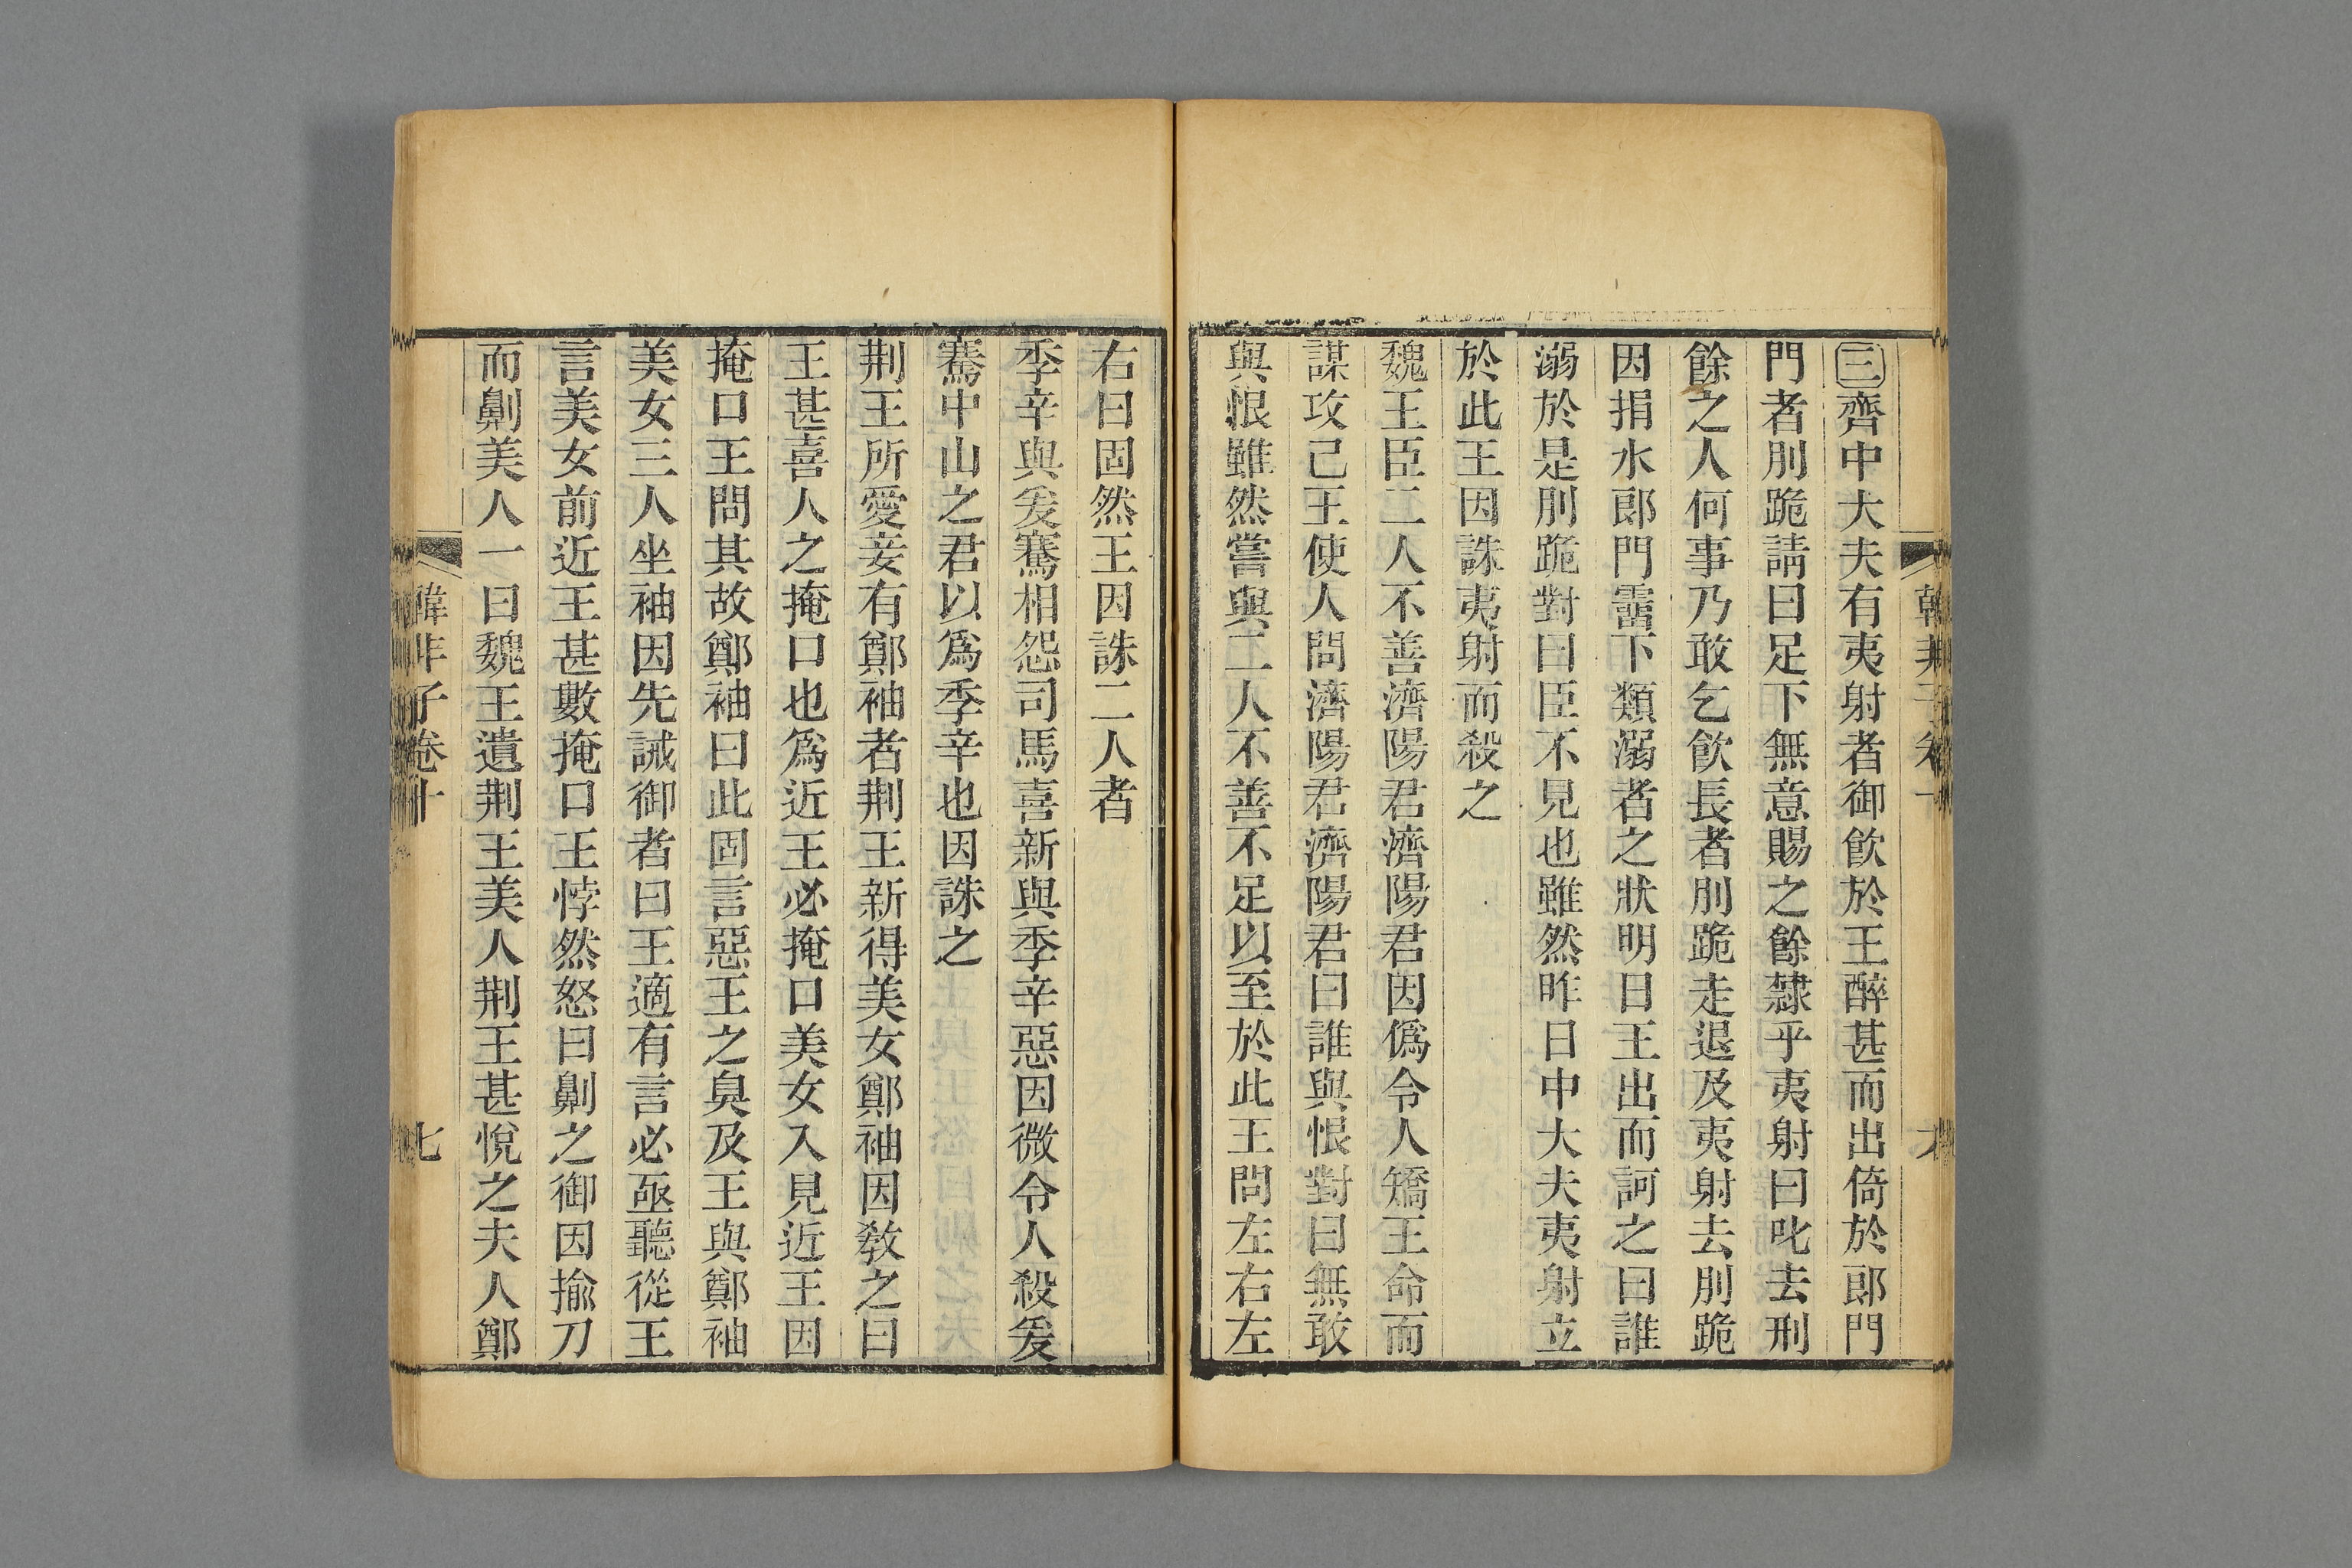 三齊中大夫有夷射者御飲於王醉甚而出倚於郎門
門者刖跪請曰足下無意賜之餘隸乎夷射曰叱去刑
餘之人何事乃敢乞飲長者刖跪走退及夷射去刖跪
因捐水郎門霤下類溺者之狀明日王出而訶之曰誰
溺於是刖跪對曰臣不見也雖然昨日中大夫夷射立
於此王因誅夷射而殺之
魏王臣二人不善濟陽君濟陽君因僞令人矯王命而
謀攻己王使人問濟陽君濟陽君曰誰與恨對曰無敢
與恨雖然嘗與二人不善不足以至於此王問左右左
右曰固然王因誅二人者
季辛與爰騫相怨司馬喜新與季辛惡因微令人殺爰
騫中山之君以爲季辛也因誅之
荆王所愛妾有鄭袖者荆王新得美女鄭袖因敎之曰
王甚喜人之掩口也爲近王必掩口美女入見近王因
掩口王問其故鄭袖曰此固言惡王之臭及王與鄭袖
美女三人坐袖因先誡御者曰王適有言必亟聽從王
言美女前近王甚數掩口王悖然怒曰劓之御因揄刀
而劓美人一曰魏王遺荆王美人荆王甚悅之夫人鄭
韓非子卷十
七